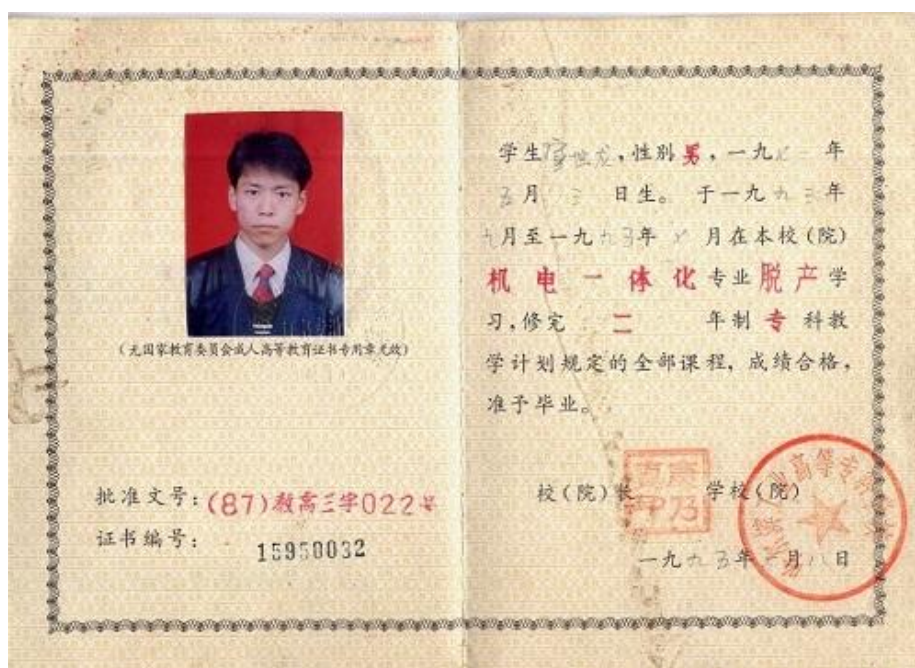 (无国家教育委员会成人高等教育证书专用章无效)
批准文号:(87)教高三字022号
证书编号:15950032
学生,性别男,一九 年
五月 日生。于一九九三年
九月至一九九五年 月在本校(院)
机电一体化专业脱产学
习,修完 二 年制 专 科教
学计划规定的全部课程,成绩合格,
准予毕业。
校(院)长 学校(院)
高等专
一九九五年 月八日